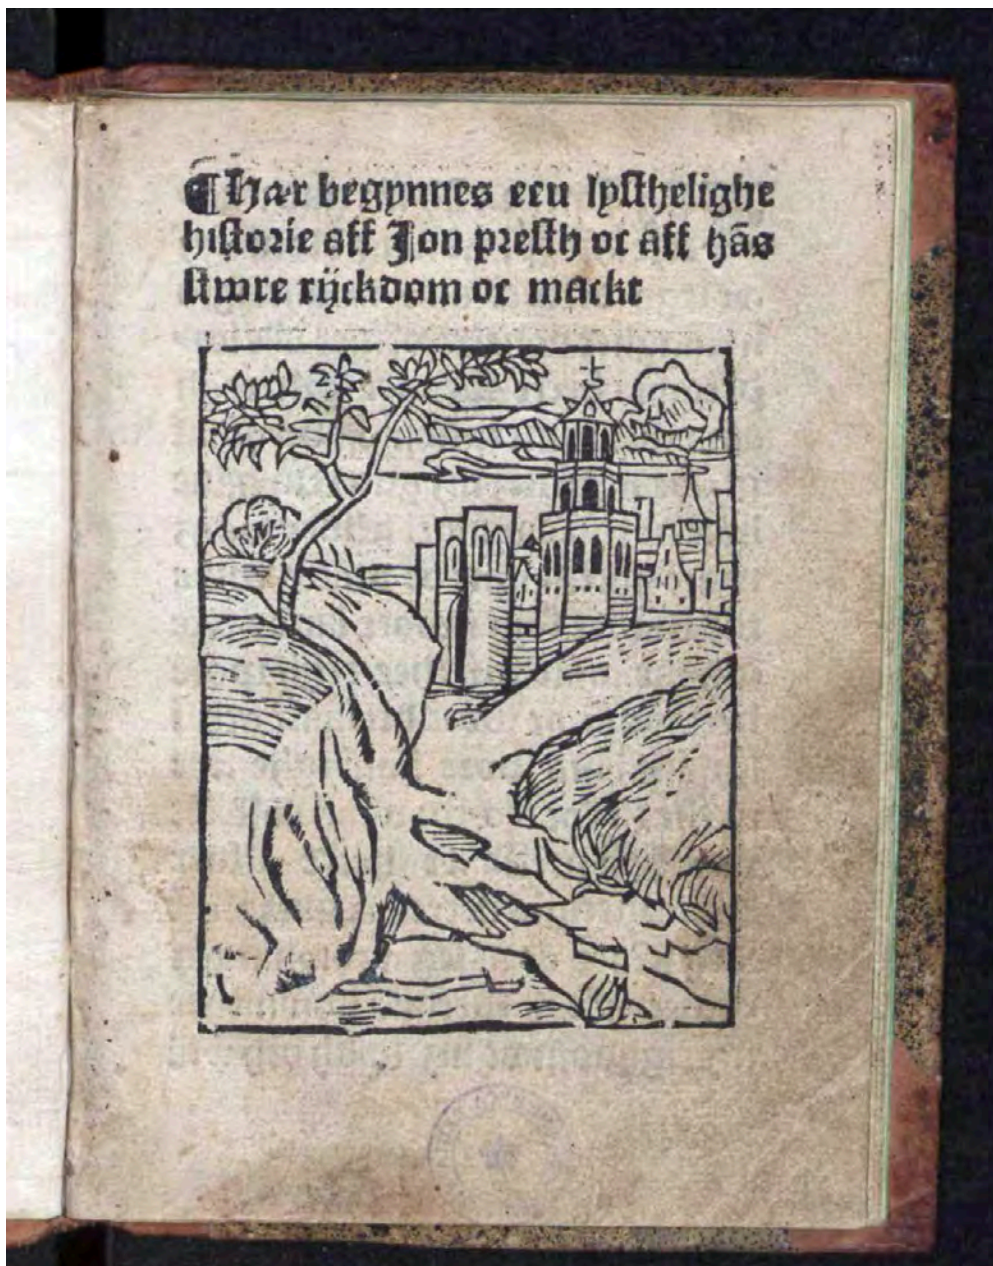 ¶ Hær begynnes een lysthelighe
historie aff Jon presth oc aff hãs
stwre rijckdom oc mackt